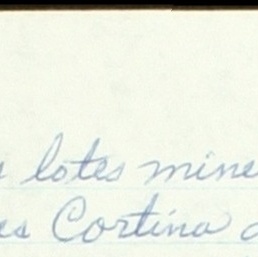 lotes mine
es Cortina